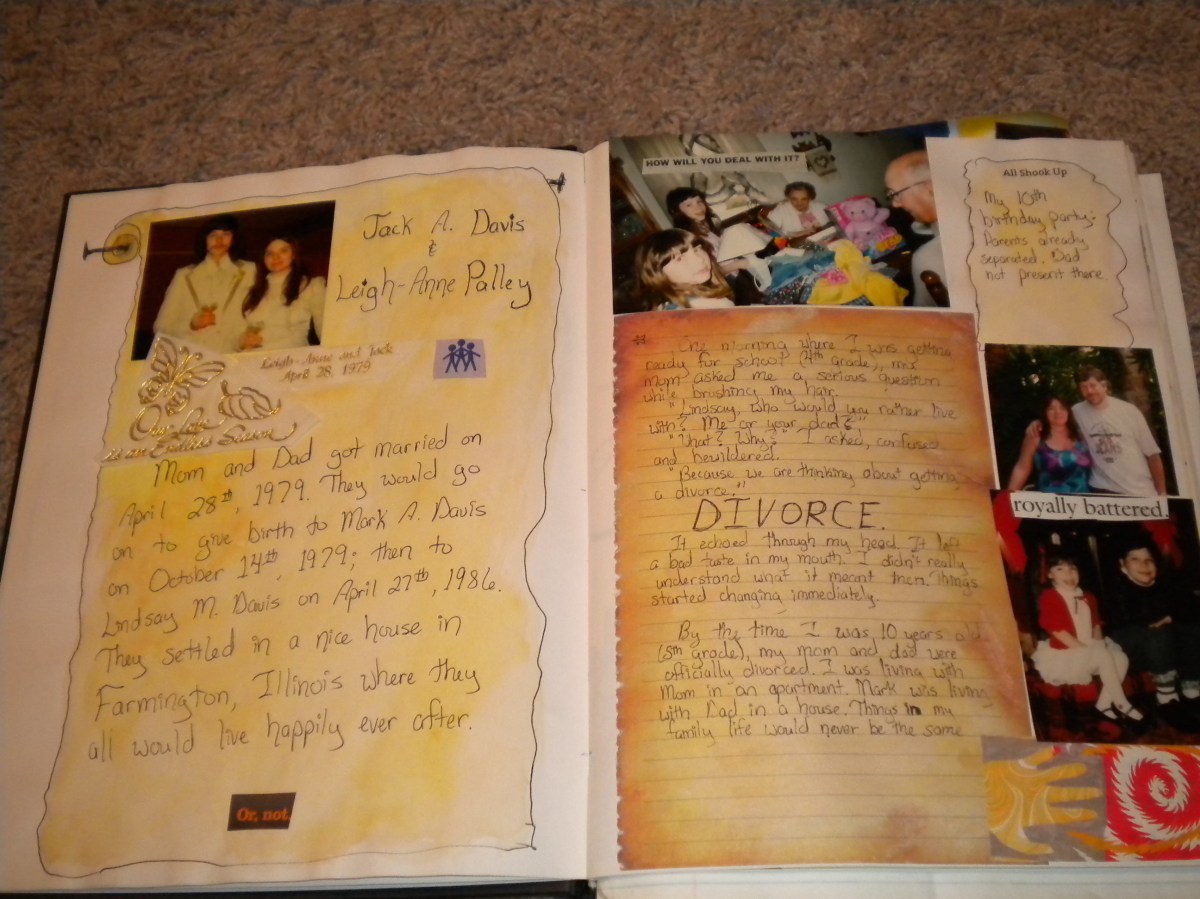 Jack A. Davis
&
Leigh-Anne Palley
Leigh-Anne and Jack
April 28, 1979
Our Love
is an Endless Season
Mom and Dad got married on
April 28th, 1979. They would go
on to give birth to Mark A. Davis
on October 14th, 1979; then to
Lindsay M. Davis on April 27th, 1986.
They settled in a nice house in
Farmington, Illinois where they
all would live happily ever after.
Or, not.
HOW WILL YOU DEAL WITH IT?
All Shook Up
My 10th
birthday party:
Parents already
separated. Dad
not present there.
One morning where I was getting
ready for school (4th grade), my
Mom asked me a serious question
while brushing my hair.
"Lindsay, who would you rather live
with? Me or your dad?"
"What? Why?" I asked, confused
and bewildered.
"Because we are thinking about getting
a divorce."
DIVORCE.
It echoed through my head. It left
a bad taste in my mouth. I didn't really
understand what it meant then. Things
started changing immediately.
By the time I was 10 years old
(5th grade), my mom and dad were
officially divorced. I was living with
Mom in an apartment. Mark was living
with Dad in a house. Things in my
family life would never be the same
royally battered.